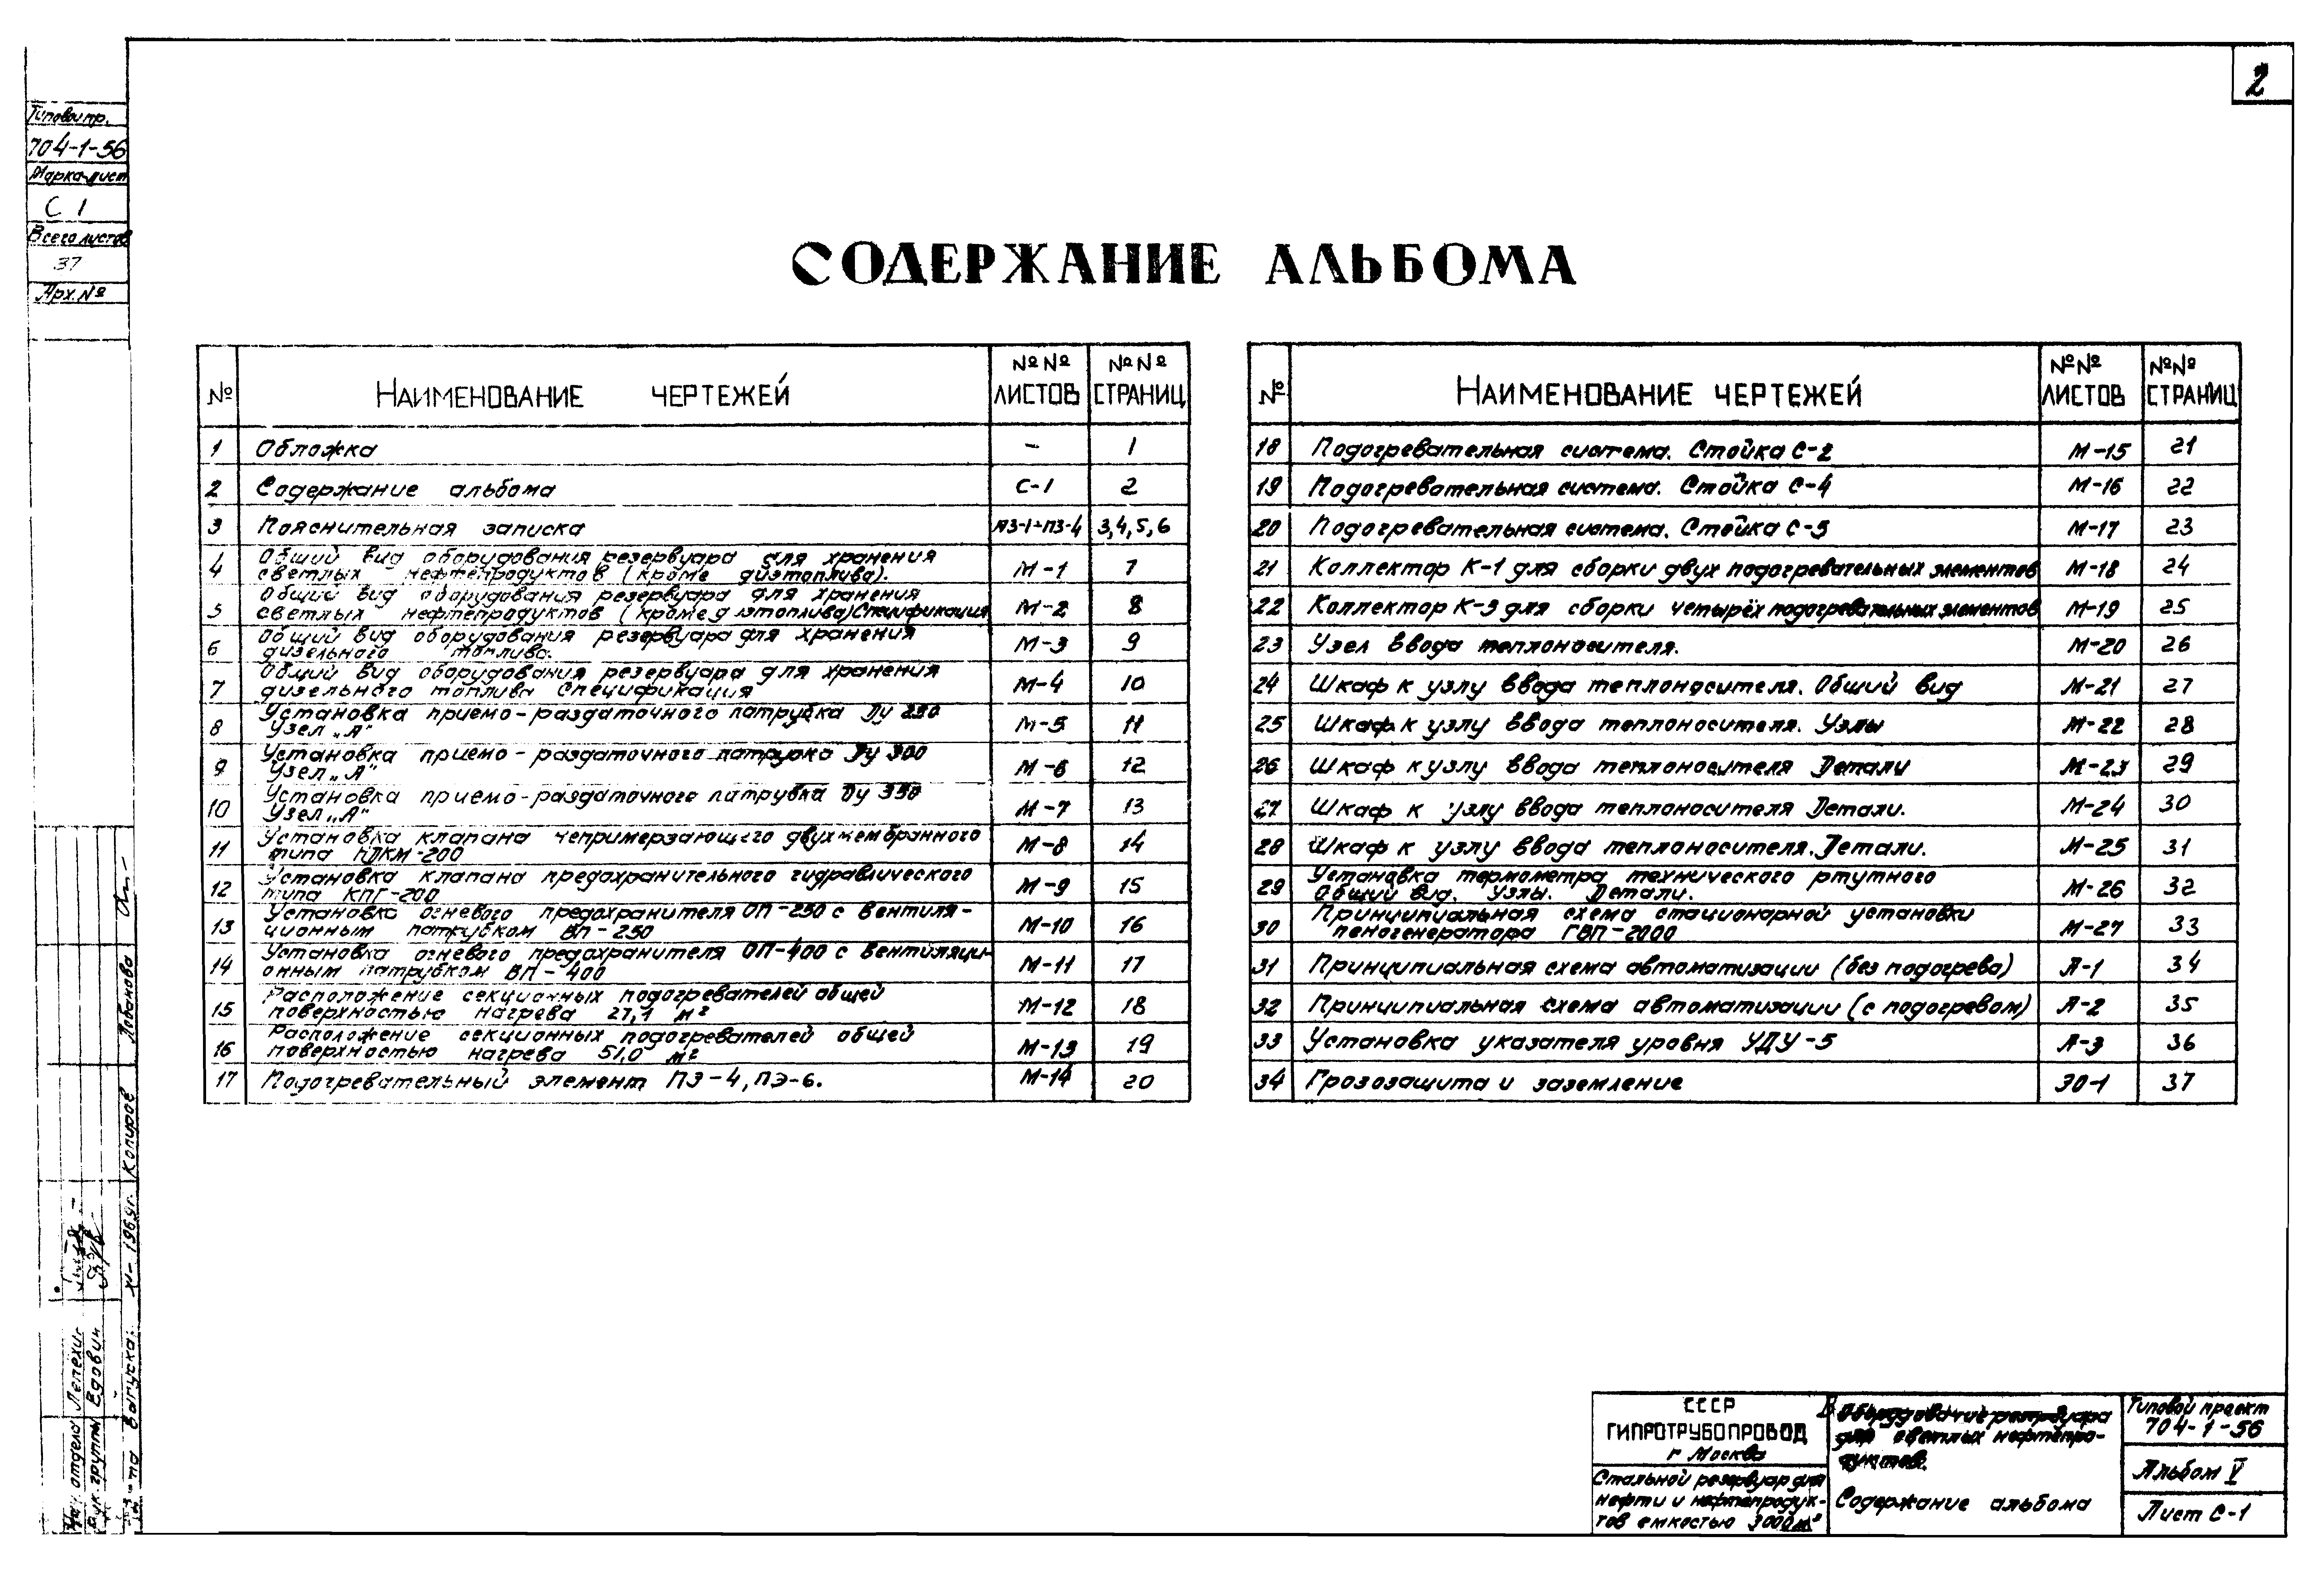 2
Типовой пр.
704-1-56
Марка-лист
С 1
Всего листов
37
Арх. №
СОДЕРЖАНИЕ АЛЬБОМА
№ НАИМЕНОВАНИЕ ЧЕРТЕЖЕЙ №№ ЛИСТОВ №№ СТРАНИЦ
1 Обложка – 1
2 Содержание альбома С-1 2
3 Пояснительная записка ПЗ-1÷ПЗ-4 3,4,5,6
4 Общий вид оборудования резервуара для хранения
светлых нефтепродуктов (кроме дизтоплива). М-1 7
5 Общий вид оборудования резервуара для хранения
светлых нефтепродуктов (кроме дизтоплива) Спецификация М-2 8
6 Общий вид оборудования резервуара для хранения
дизельного топлива. М-3 9
7 Общий вид оборудования резервуара для хранения
дизельного топлива Спецификация М-4 10
8 Установка приемо-раздаточного патрубка Ду 250
Узел „А" М-5 11
9 Установка приемо-раздаточного патрубка Ду 300
Узел „А" М-6 12
10 Установка приемо-раздаточного патрубка Ду 350
Узел „А" М-7 13
11 Установка клапана непримерзающего двухмембранного
типа НДКМ-200 М-8 14
12 Установка клапана предохранительного гидравлического
типа КПГ-200 М-9 15
13 Установка огневого предохранителя ОП-250 с вентиля-
ционным патрубком ВП-250 М-10 16
14 Установка огневого предохранителя ОП-400 с вентиляци-
онным патрубком ВП-400 М-11 17
15 Расположение секционных подогревателей общей
поверхностью нагрева 27,1 м² М-12 18
16 Расположение секционных подогревателей общей
поверхностью нагрева 51,0 м² М-13 19
17 Подогревательный элемент ПЭ-4, ПЭ-6. М-14 20
№ НАИМЕНОВАНИЕ ЧЕРТЕЖЕЙ №№ ЛИСТОВ №№ СТРАНИЦ
18 Подогревательная система. Стойка С-2 М-15 21
19 Подогревательная система. Стойка С-4 М-16 22
20 Подогревательная система. Стойка С-5 М-17 23
21 Коллектор К-1 для сборки двух подогревательных элементов М-18 24
22 Коллектор К-3 для сборки четырёх подогревательных элементов М-19 25
23 Узел ввода теплоносителя. М-20 26
24 Шкаф к узлу ввода теплоносителя. Общий вид М-21 27
25 Шкаф к узлу ввода теплоносителя. Узлы М-22 28
26 Шкаф к узлу ввода теплоносителя Детали М-23 29
27 Шкаф к узлу ввода теплоносителя Детали. М-24 30
28 Шкаф к узлу ввода теплоносителя. Детали. М-25 31
29 Установка термометра технического ртутного
Общий вид. Узлы. Детали. М-26 32
30 Принципиальная схема стационарной установки
пеногенератора ГВП-2000 М-27 33
31 Принципиальная схема автоматизации (без подогрева) А-1 34
32 Принципиальная схема автоматизации (с подогревом) А-2 35
33 Установка указателя уровня УДУ-5 А-3 36
34 Грозозащита и заземление ЭО-1 37
Нач. отдела Лепехин
Рук. группы Вдовин
выпуска: XI-1969г. Копиров Лобанова
СССР
ГИПРОТРУБОПРОВОД
г Москва
Стальной резервуар для
нефти и нефтепродук-
тов емкостью 3000м³
Оборудование резервуара
для светлых нефтепро-
дуктов.
Содержание альбома
Типовой проект
704-1-56
Альбом V
Лист С-1